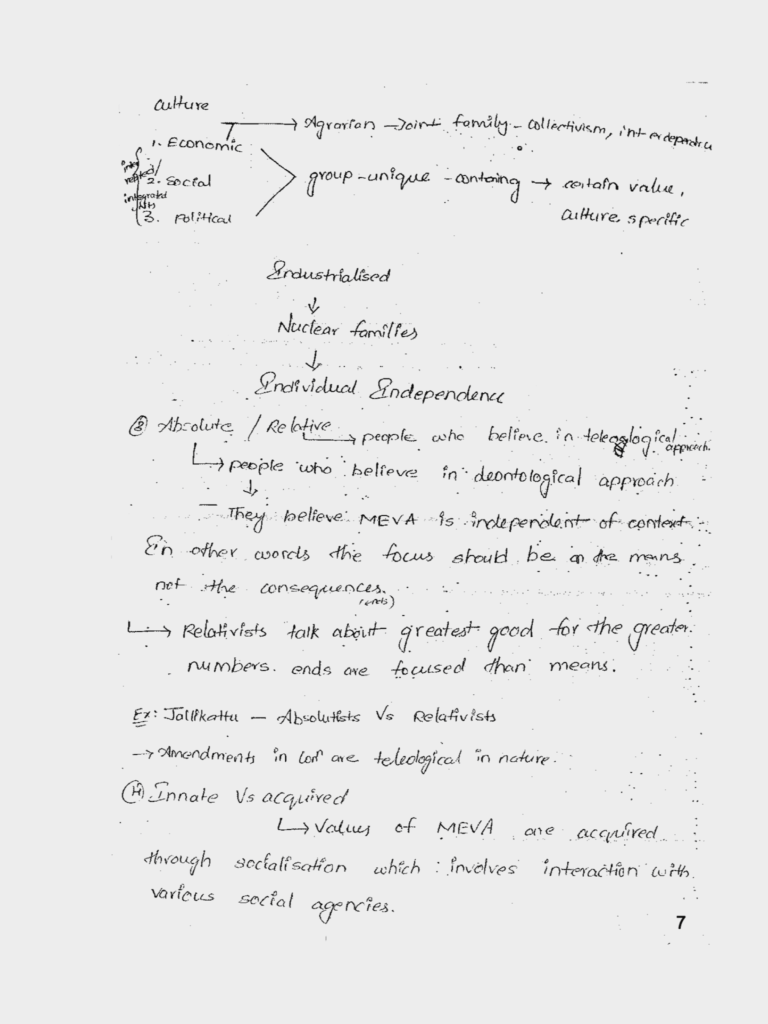 Culture
→ Agrarian - Joint family - collectivism, interdependence
1. Economic
inter related/ integrated
2. Social
group - unique - containg → certain value,
culture specific
3. Political
Industrialised
↓
Nuclear families
↓
Individual Independence
③ Absolute / Relative
→ people who believe in teleological approach.
→ people who believe in deontological approach
↓
- They believe MEVA is independent of context.
In other words the focus should be on the means
not the consequences.
(ends)
→ Relativists talk about greatest good for the greater
numbers. ends are focused than means.
Ex: Jallikattu - Absolutists Vs Relativists
→ Amendments in are teleological in nature.
④ Innate Vs acquired
→ Values of MEVA are acquired
through socialisation which involves interaction with
various social agencies.
7